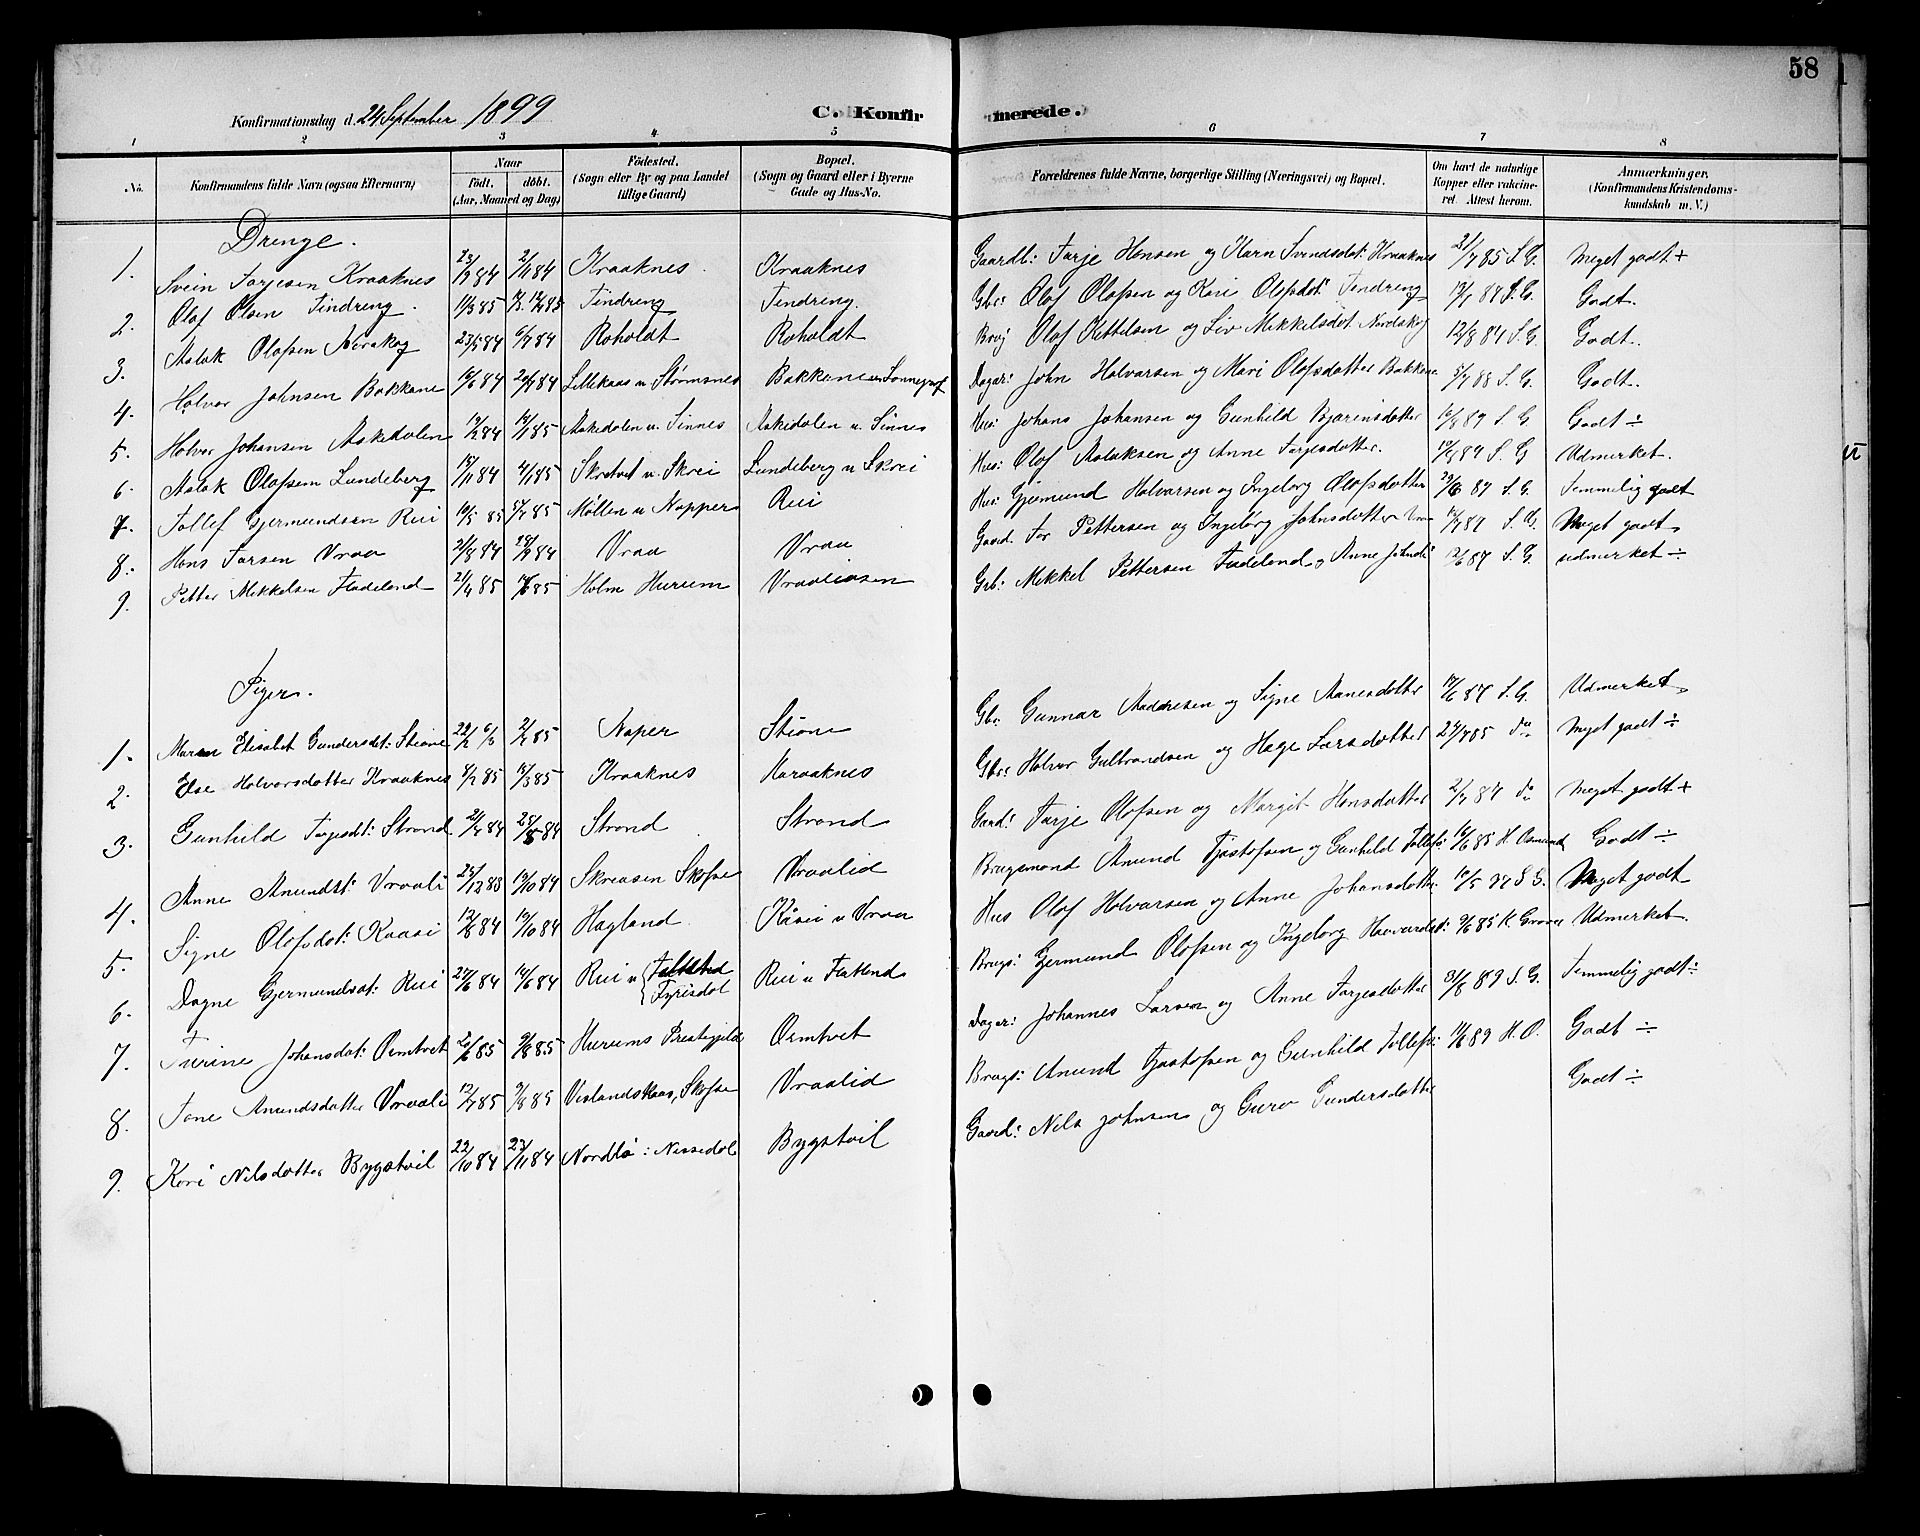 58
Konfirmationsdag d. 24 September 1899
C. Konfirmerede.
1 2 3 4 5 6 7 8
No. Konfirmandens fulde Navn (ogsaa Efternavn) Naar födt, döbt. (Aar, Maaned og Dag) Födested. (Sogn eller By og paa Landet tillige Gaard) Bopæl. (Sogn og Gaard eller i Byerne Gade og Hus-No. Forældrenes fulde Navne, borgerlige Stilling (Næringsvei) og Bopæl. Om havt de naturlige Kopper eller vaccineret. Attest herom. Anmærkninger. (Konfirmandens Kristendomskundskab m. V.)
Drenge.
1. Svein Tarjesen Kraaknes Kraaknes Kraaknes Gaardb: Tarje Hansen og Karn Svendsdt: Kraaknes 21/7 85 S. G. Meget godt +
2. Olaf Olsen Tindreng 11/3 85 Tindreng Tendreng. Gbr: Olaf Olafsen og Kari Olofsdt: Tendreng S. G. Godt.
3. Aslak Olafsen Nordskog 23/5 84 6/7 84 Roholdt Roholdt Brg Olaf Kettelsen og Liv Mikkelsdot. Nordskog 12/8 84 S. G. Godt.
4. Halvor Johnsen Bakkane 84 84 Lillekaas u. Strømsnes Bakkane u. Dagar: John Halvarsen og Mari Olofsdotter Bakkane 88 S. G. Godt.
5. Halvor Johansen Askedalen 84 85 Askedalen u. Sinnes Askedalen u. Sinnes Hus: Johans Johansen og Gunhild Bjørensdotter 87 S. G Godt ÷
6. Aslak Olafsen Lundeberg 84 4/1 85 Skretvet u. Skrei Lundeberg u Skrei Hus: Olaf Aslaksen og Anne Tarjesdotter. 87 S. G Udmerket.
7. Tollef Gjermundsen Rui 85 85 Møllen u Napper Rui Hus: Gjermund Halvarsen og Ingeborg Olafsdotter 29/6 87 S. G. Temmelig godt
8. Hans Tarsen Vraa 21/8 84 28/9 84 Vraa Vraa Gaard. Tor Pettersen og Ingeborg Johnsdotter 87 S. G. Meget godt
9. Petter Mikkelsen Fladeland 21/4 85 85 Holm Hurum Vraaliosen Grb: Mikkel Pettersen Fladeland, Anne Johnd: 87 S. G. udmerket ÷
Piger.
1. Maren Elisabet Gundersdt: Stione 22/2 85 Naper Stione Gbr. Gunnar Aadnesen og Signe Aanesdotter 87 S. G. Udmerket
2. Else Halvorsdotter Kraaknes 85 85 Kraaknes Karaaknes Gbr: Halvor Gulbrandsen og Hage Larsdotter 85 do Myet godt ÷
3. Gunhild Tarjesdt: Strand 84 84 Strand Strand Gaard: Tarje Olofsen og Margit Hansdotter 84 do Meget godt +
4. Anne Amundsdt: Vraali 25/12 83 19/10 84 Skreaasen Skofse Vraalid Brugsmand Amund Tjøstofsen og Gunhild Tollefs: 16/6 85 H. Osmund Godt ÷
5. Signe Olofsdot: Kaasi 12/8 84 19/10 84 Hagland Kåsei u Vraa Hus Olof Halvarsen og Anne Johansdotter 87 S. G. Meget godt
6. Dagne Gjermundsdt: Rui 84 84 Rui u Tyrisdal Rui u Flatland Brugs: Gjermund Olofsen og Ingeborg Haavardsdt: 9/6 85 K. Udmerket.
7. Turine Johansdot: Osmtvet 20/6 85 9/8 85 Hurums Prestegjeld Osmtvet Dagar: Johannes Larsen og Anne Tarjesdotter 31/8 89 S. G. Temmelig godt ÷
8. Tone Amundsdotter Vraali 12/7 85 9/8 85 Vislandskaas, Skofse Vraalid Brugs: Amund Tjøstofsen og Gunhild Tollefs: 89 H. O. Godt ÷
9. Kari Nilsdotter Bygstvil 22/10 84 23/11 84 Nordbø i Nissedal Bygstvil Gaard: Nils Johnsen og Guro Gundersdotter Godt ÷